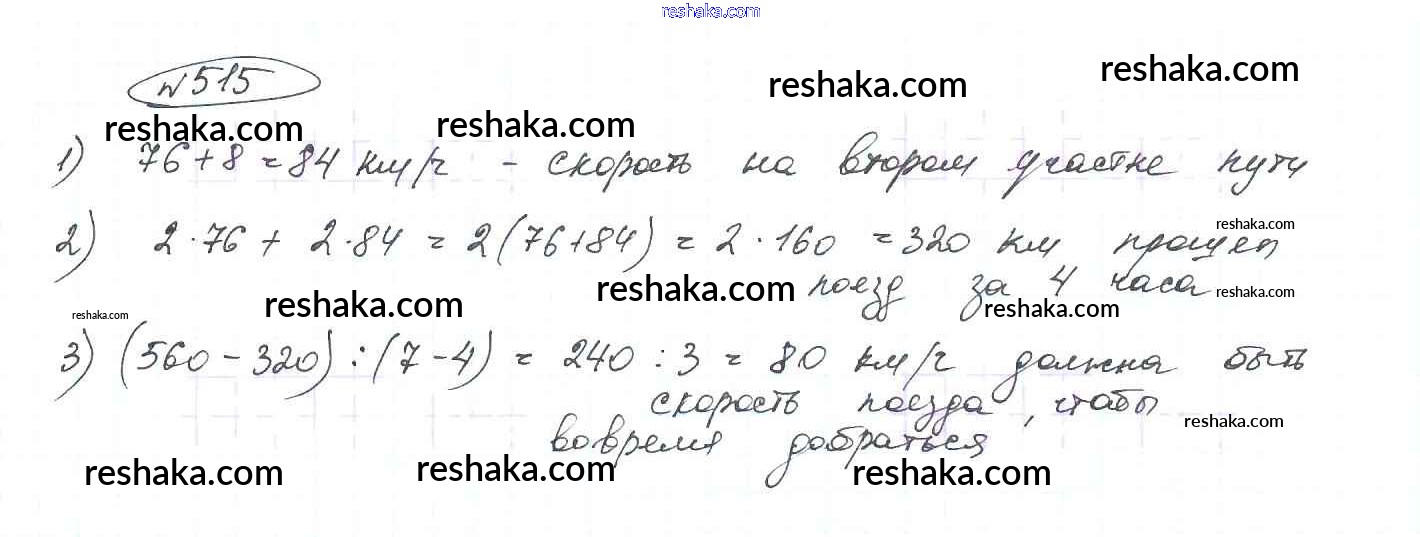 reshaka.com
№515
reshaka.com
reshaka.com
reshaka.com
reshaka.com
1) 76+8=84 км/ч - скорость на втором участке пути
reshaka.com
2) 2·76 + 2·84 = 2(76+84) = 2·160 = 320 км прошел
поезд за 4 часа
reshaka.com
reshaka.com
reshaka.com
reshaka.com
reshaka.com
3) (560-320):(7-4) = 240:3 = 80 км/ч должна быть
скорость поезда, чтобы
reshaka.com
вовремя добраться
reshaka.com
reshaka.com
reshaka.com